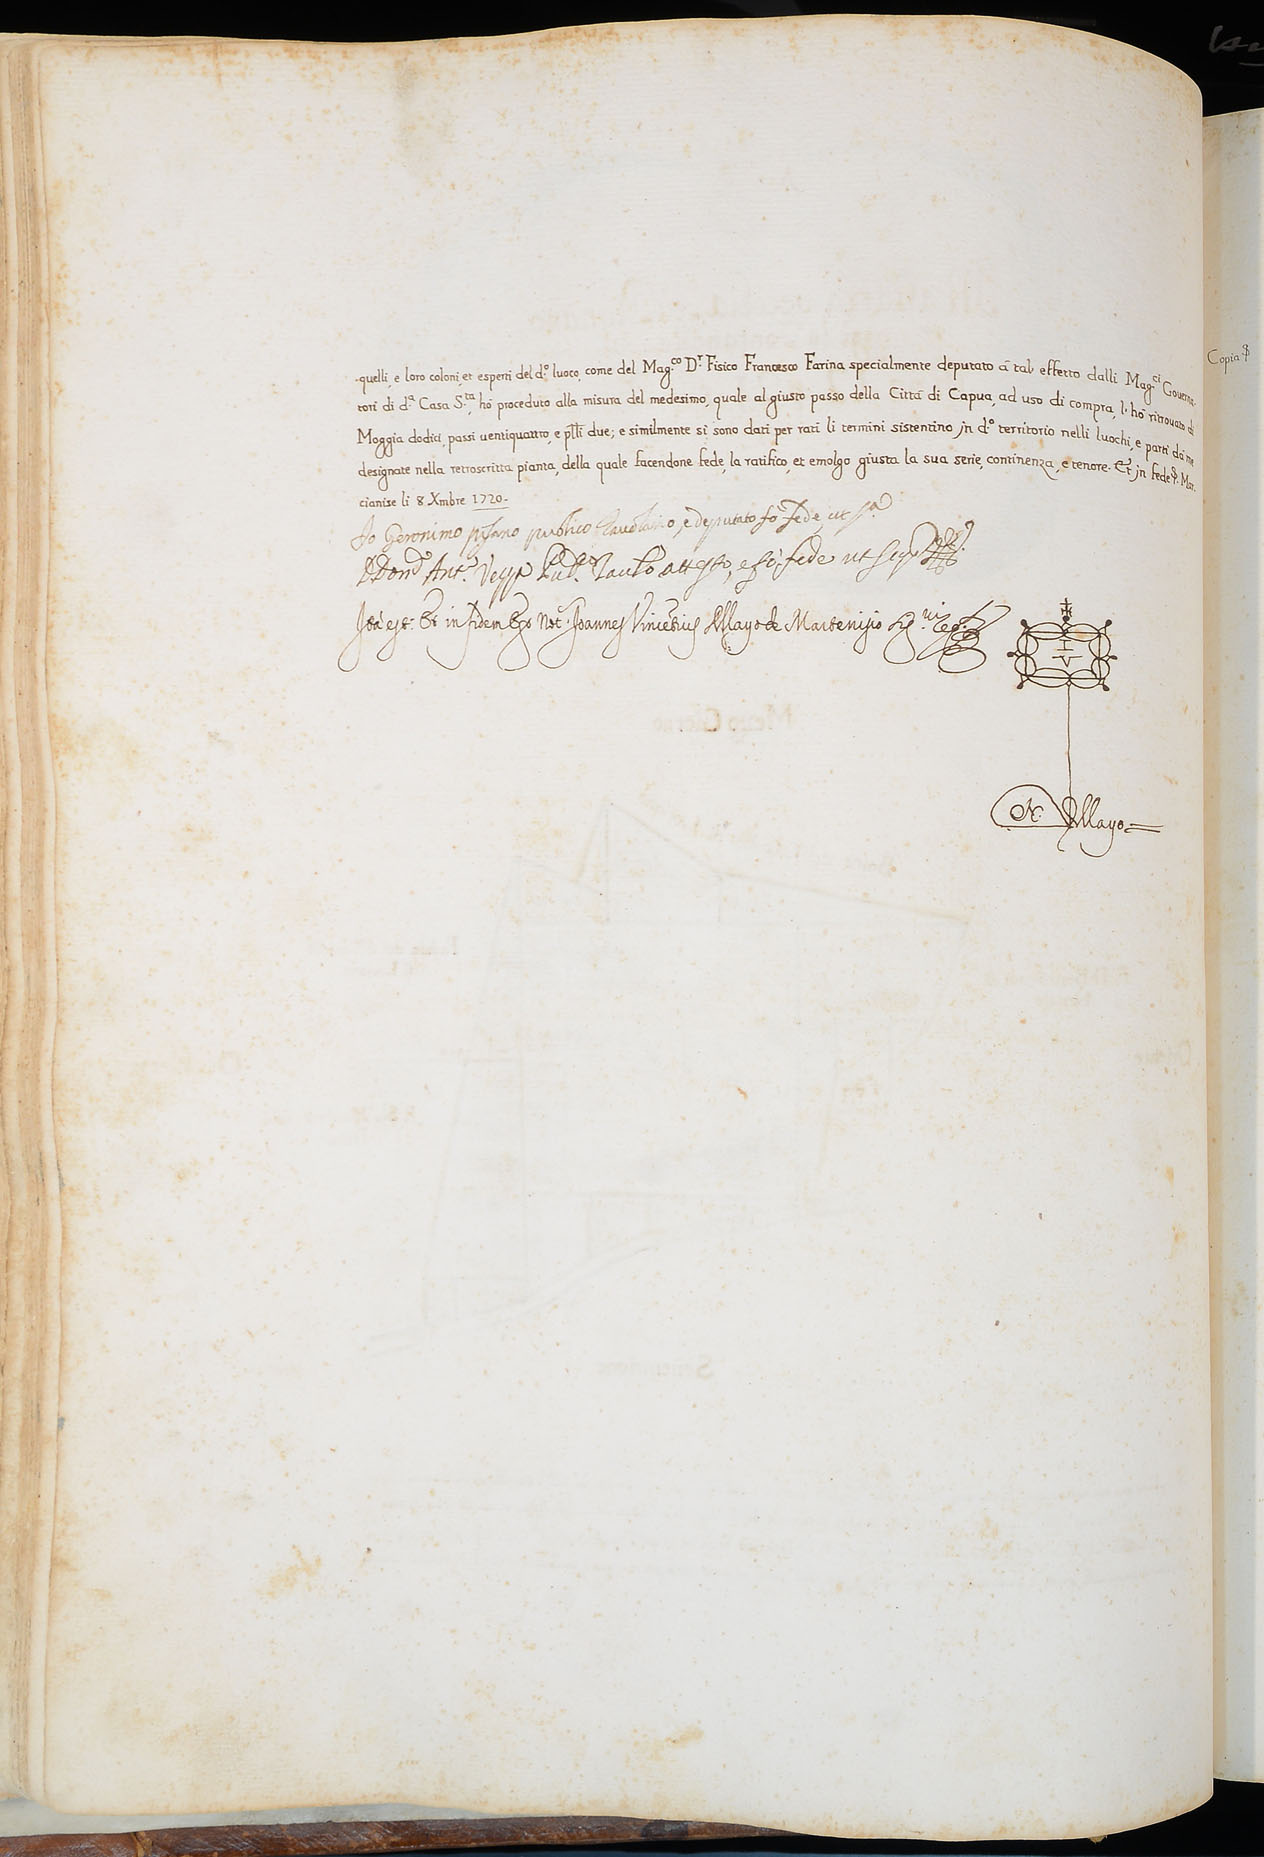 quelli, e loro coloni, et esperti del d.º luoco, come del Mag.co D.r Fisico Francesco Farina specialmente deputato à tal effetto dalli Mag.ci Governa-
tori di d.ª Casa S.ta, hò proceduto alla misura del medesimo, quale al giusto passo della Città di Capua, ad uso di compra, l'hò ritrovato di
Moggia dodici, passi uentiquattro, e p̃lli due; e similmente si sono dati per rati li termini sistentino jn d.º territorio nelli luochi, e parti dà me
designate nella retroscritta pianta, della quale facendone fede, la ratifico, et emolgo giusta la sua serie, continenza, e tenore. Et jn fede & Mar-
cianise li 8 Xmbre 1720.
Io Geronimo pisano publico tauolario, e deputato fò fede ut s.ª
Ant.º Pub.º attesto, e fò fede ut
Ita est. Et in fidem Ego Not.s Joannes Vincētius Mayo de Martenisio
IV
N. Mayo
Copia
Mezo Giorno